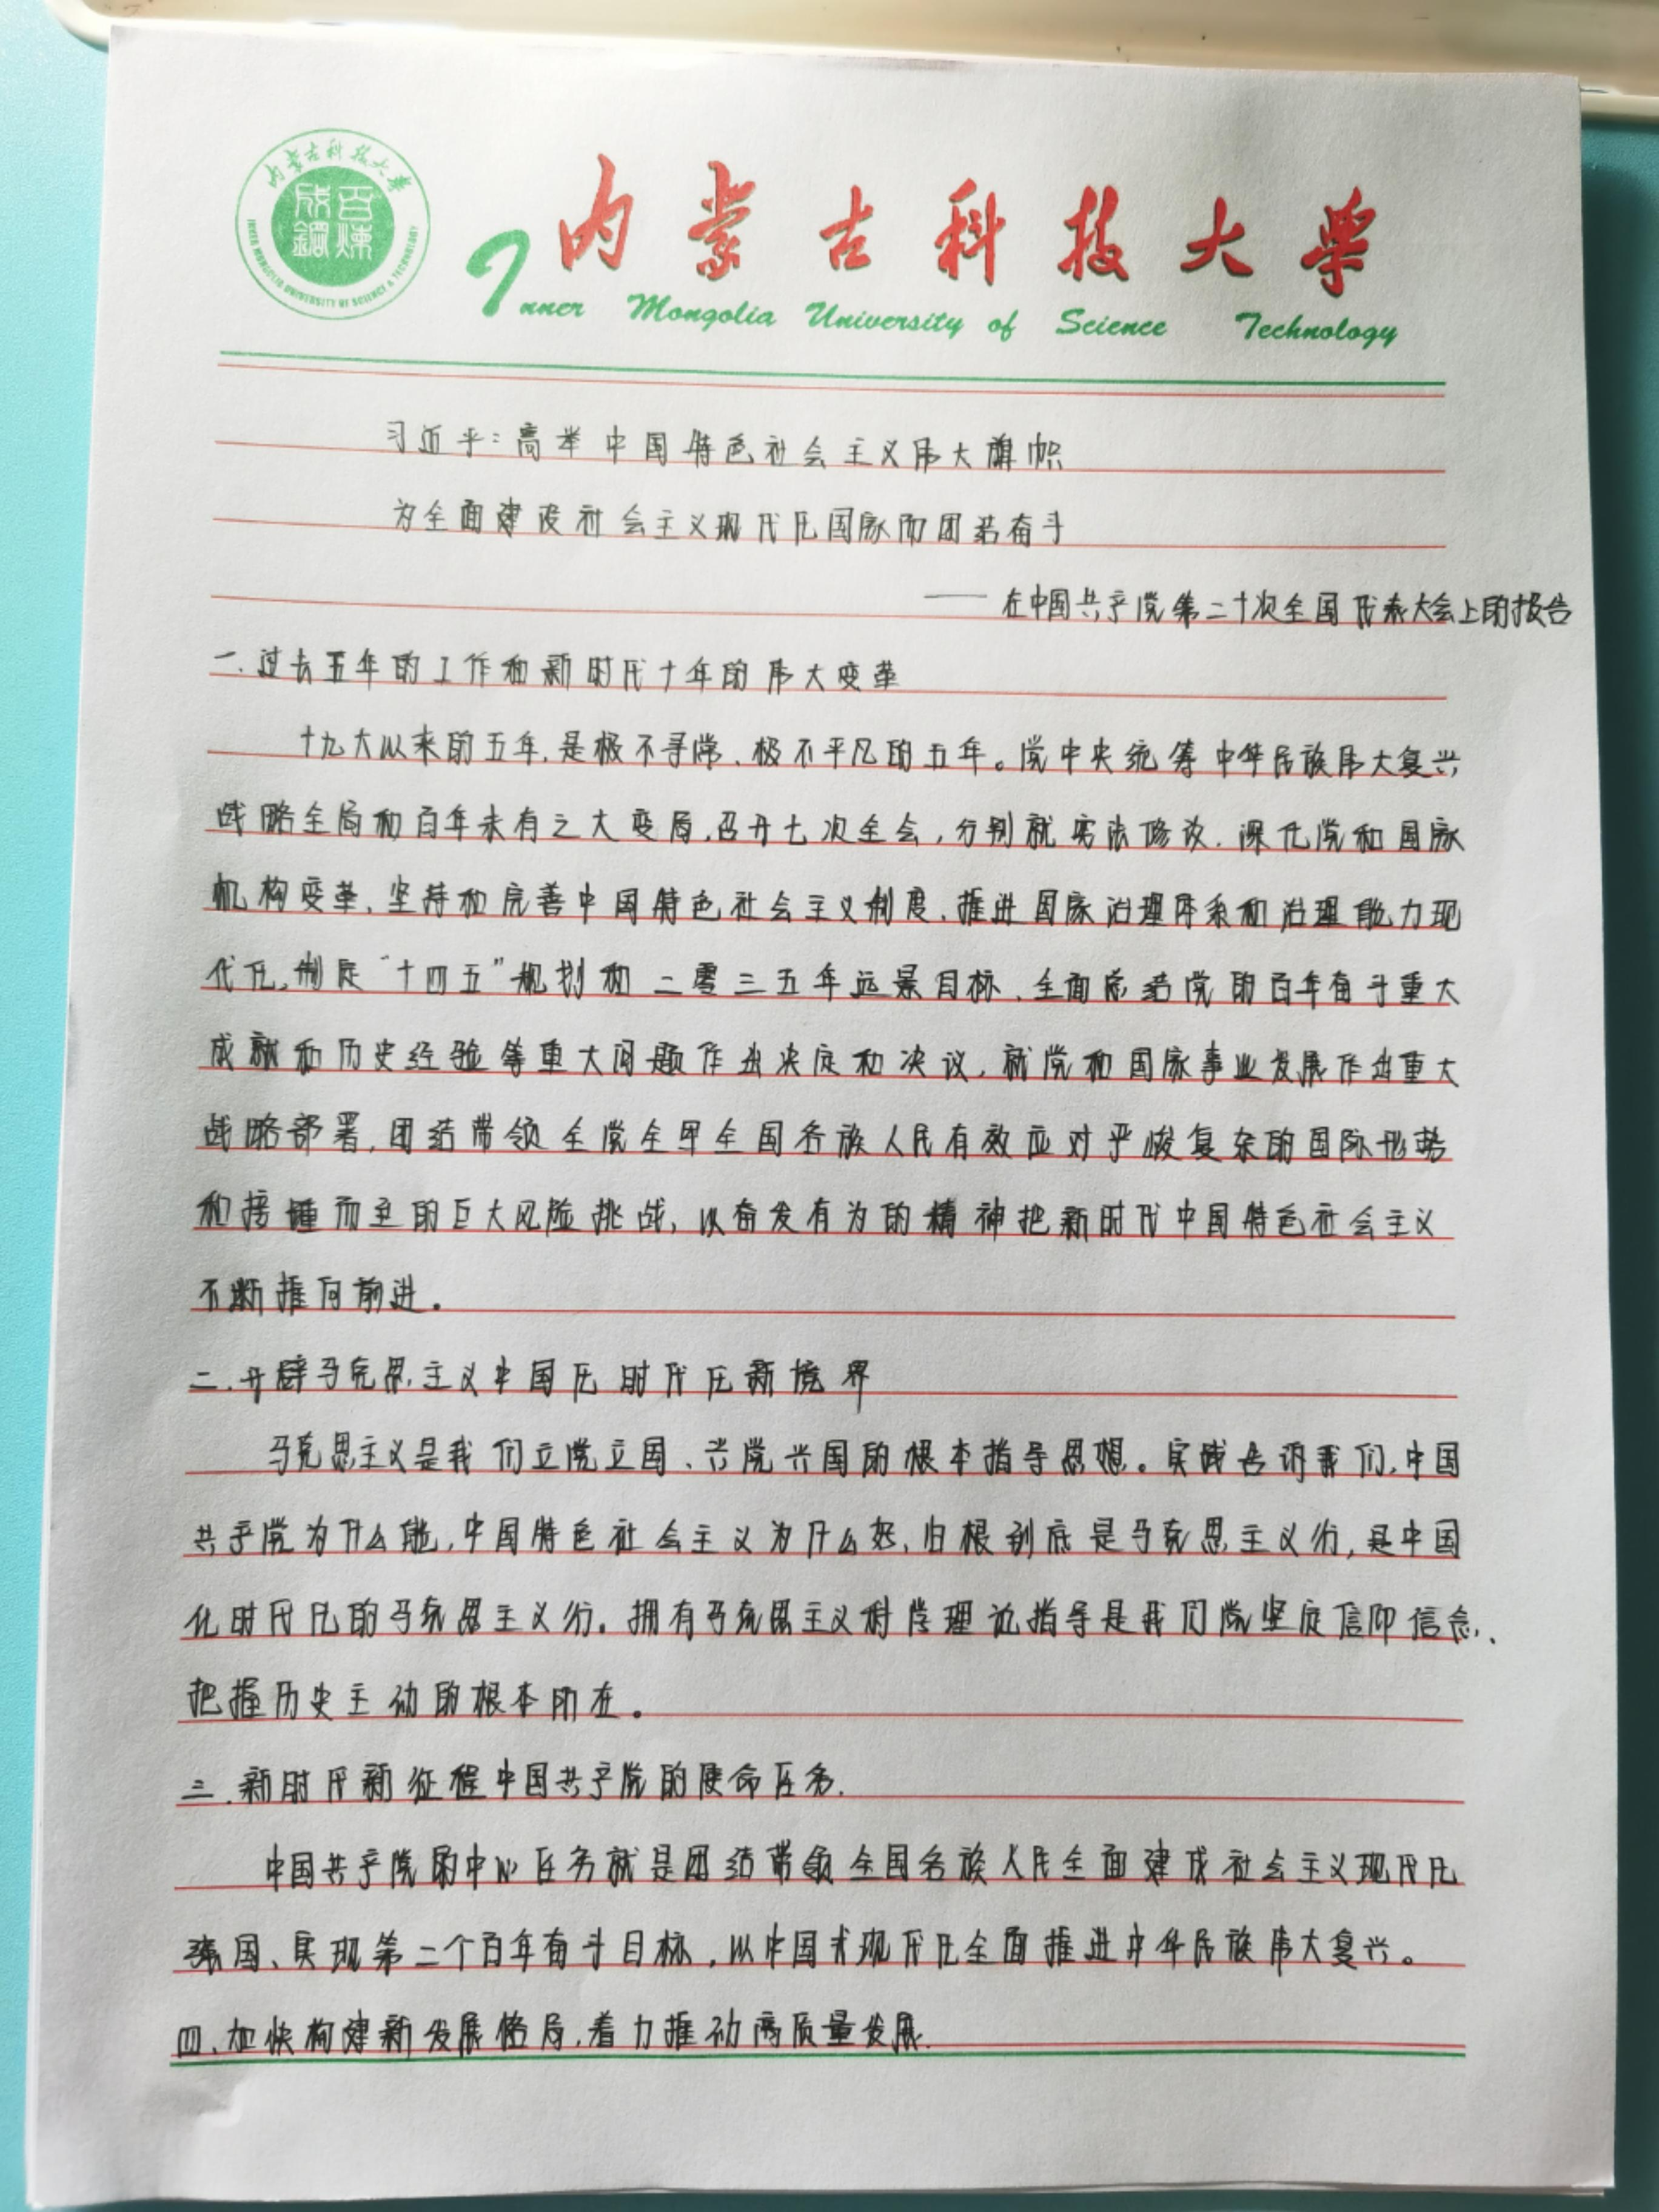 内蒙古科技大学
百炼成钢
INNER MONGOLIA UNIVERSITY OF SCIENCE & TECHNOLOGY
内蒙古科技大学
Inner Mongolia University of Science Technology
习近平:高举中国特色社会主义伟大旗帜
为全面建设社会主义现代化国家而团结奋斗
——在中国共产党第二十次全国代表大会上的报告
一.过去五年的工作和新时代十年的伟大变革
十九大以来的五年,是极不寻常、极不平凡的五年。党中央统筹中华民族伟大复兴
战略全局和百年未有之大变局,召开七次全会,分别就宪法修改,深化党和国家
机构变革、坚持和完善中国特色社会主义制度、推进国家治理体系和治理能力现
代化,制定“十四五”规划和二零三五年远景目标、全面总结党的百年奋斗重大
成就和历史经验等重大问题作出决定和决议,就党和国家事业发展作出重大
战略部署,团结带领全党全军全国各族人民有效应对严峻复杂的国际形势
和接踵而至的巨大风险挑战,以奋发有为的精神把新时代中国特色社会主义
不断推向前进。
二.开辟马克思主义中国化时代化新境界
马克思主义是我们立党立国、兴党兴国的根本指导思想。实践告诉我们,中国
共产党为什么能,中国特色社会主义为什么好,归根到底是马克思主义行,是中国
化时代化的马克思主义行。拥有马克思主义科学理论指导是我们党坚定信仰信念、
把握历史主动的根本所在。
三.新时代新征程中国共产党的使命任务.
中国共产党的中心任务就是团结带领全国各族人民全面建成社会主义现代化
强国、实现第二个百年奋斗目标,以中国式现代化全面推进中华民族伟大复兴。
四、加快构建新发展格局,着力推动高质量发展.